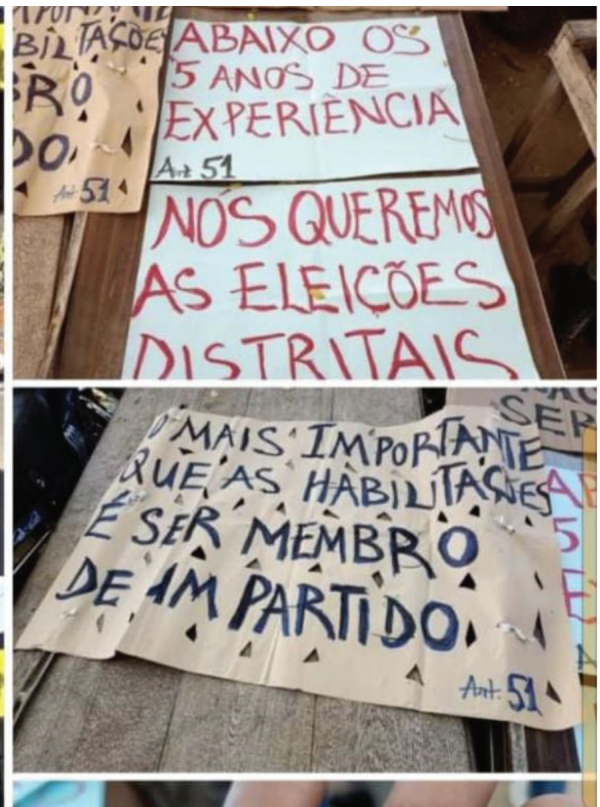 PORTANTE
BILITAÇÕES
BRO
DO
Art 51
ABAIXO OS
5 ANOS DE
EXPERIÊNCIA
Art 51
NÓS QUEREMOS
AS ELEIÇÕES
DISTRITAIS
O MAIS IMPORTANTE
QUE AS HABILITAÇÕES
É SER MEMBRO
DE 1M PARTIDO
Art. 51
SER
A
5
E